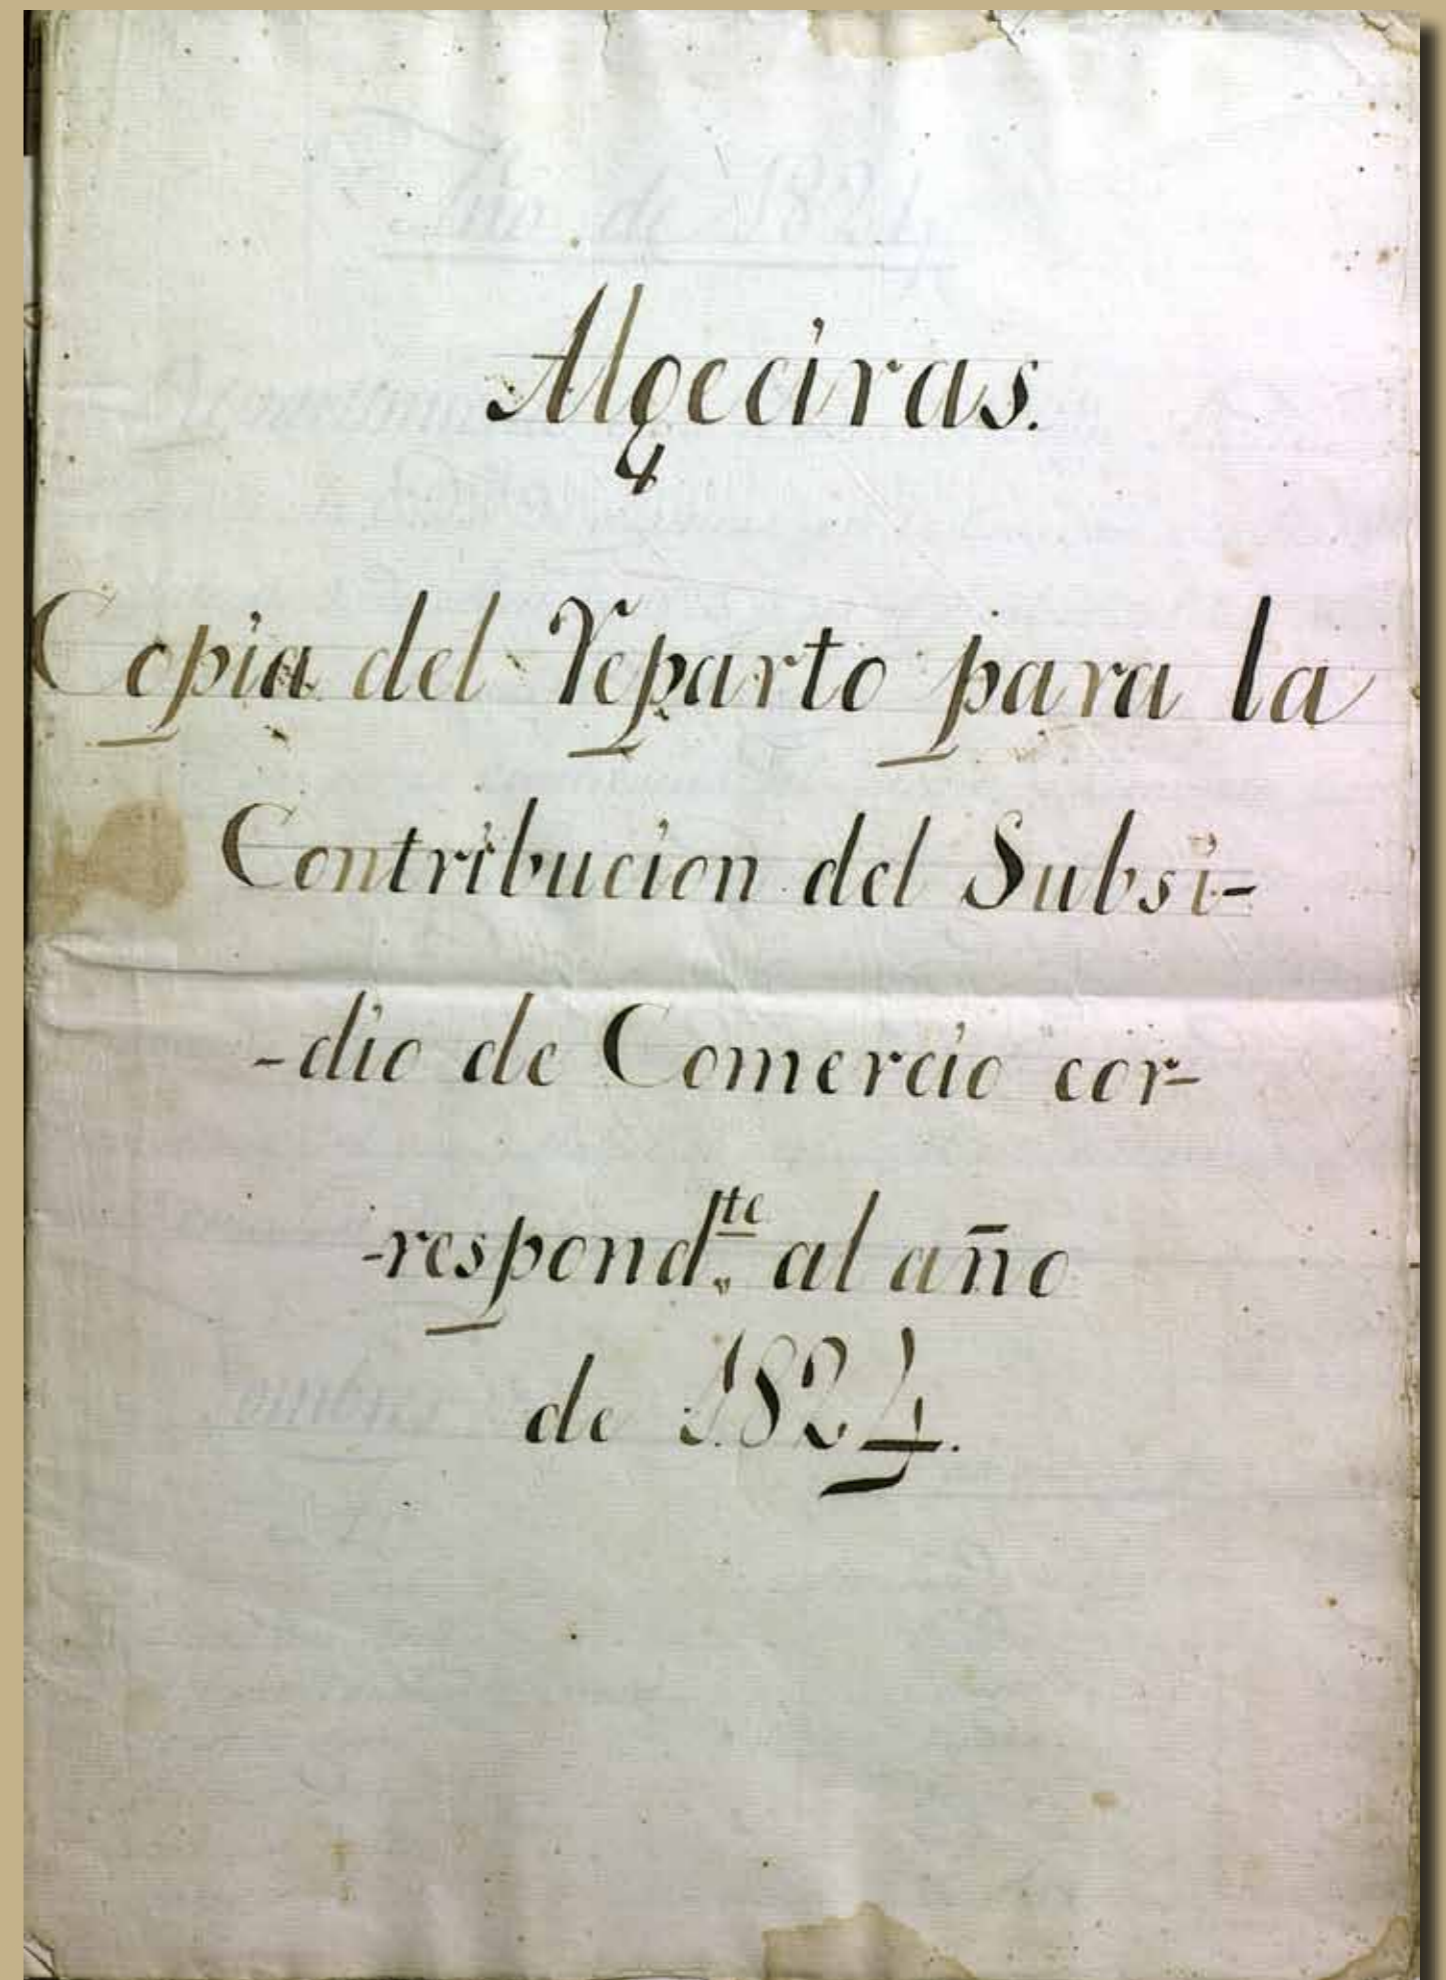 Algeciras.
Copia del reparto para la
Contribucion del Subsi-
-dio de Comercio cor-
-respond.te al año
de 1824.